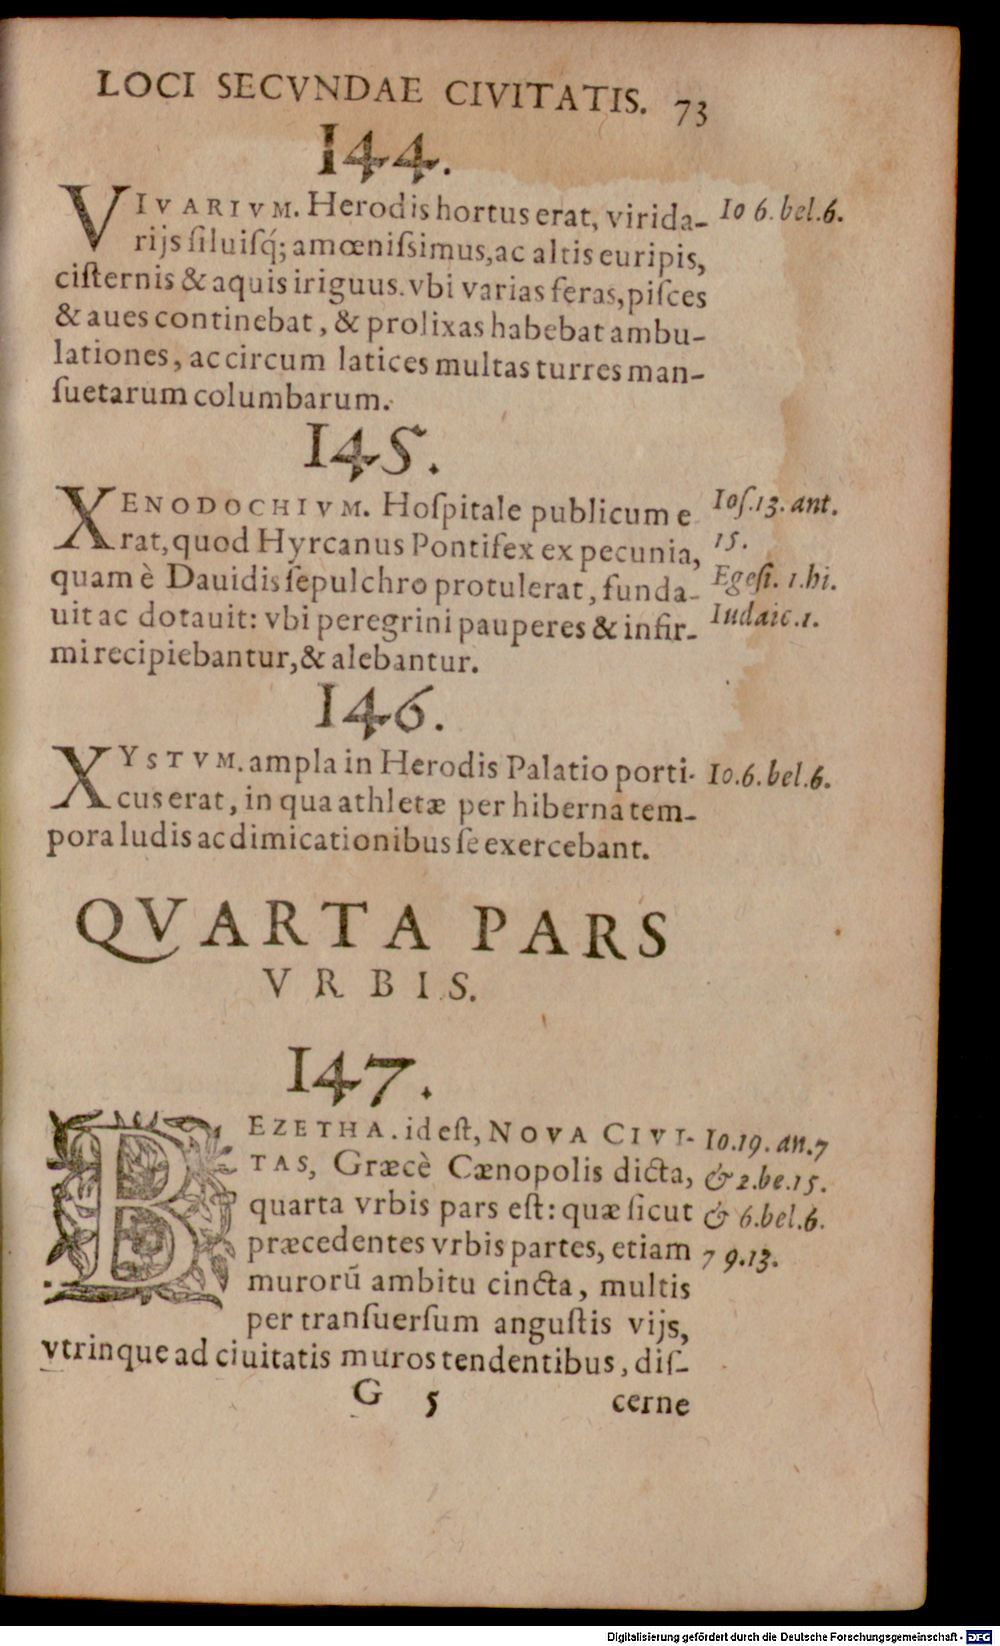 LOCI SECVNDAE CIVITATIS. 73
144.
VIVARIVM. Herodis hortus erat, virida- Io 6. bel. 6.
rijs ſiluiſq́; amœniſsimus, ac altis euripis,
ciſternis & aquis iriguus. vbi varias feras, piſces
& aues continebat, & prolixas habebat ambu-
lationes, ac circum latices multas turres man-
ſuetarum columbarum.
145.
XENODOCHIVM. Hoſpitale publicum e Ioſ. 13. ant.
rat, quod Hyrcanus Pontifex ex pecunia, 15.
quam è Dauidis ſepulchro protulerat, funda- Egeſi. 1. hi.
uit ac dotauit: vbi peregrini pauperes & infir- Iudaic. 1.
mi recipiebantur, & alebantur.
146.
XYSTVM. ampla in Herodis Palatio porti- Io. 6. bel. 6.
cus erat, in qua athletæ per hiberna tem-
pora ludis ac dimicationibus ſe exercebant.
QVARTA PARS
VRBIS.
147.
BEZETHA. id eſt, NOVA CIVI- Io. 19. an. 7
TAS, Græcè Cænopolis dicta, & 2. be. 15.
quarta vrbis pars eſt: quæ ſicut & 6. bel. 6.
præcedentes vrbis partes, etiam 7 9. 13.
murorũ ambitu cincta, multis
per tranſuerſum anguſtis vijs,
vtrinque ad ciuitatis muros tendentibus, diſ-
G 5 cerne
Digitalisierung gefördert durch die Deutsche Forschungsgemeinschaft - DFG